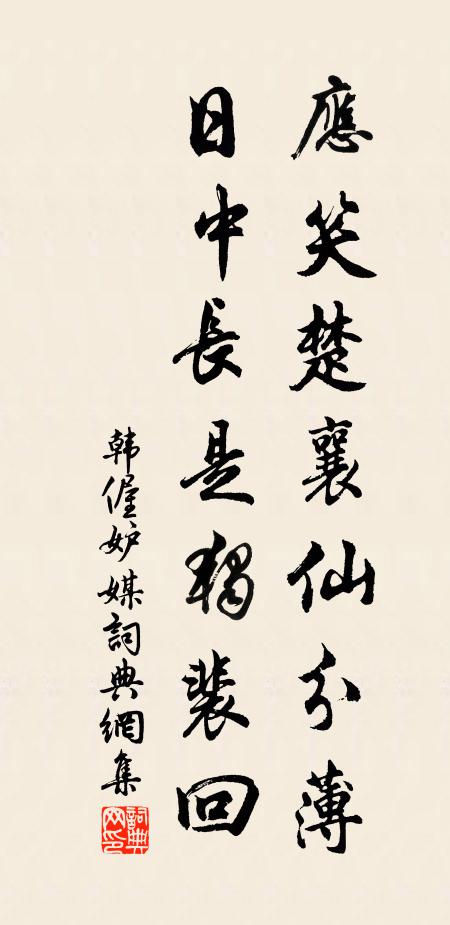 應笑楚襄仙分薄
日中長是獨裴回
韩偓妒媒詞典網集
詞典網印